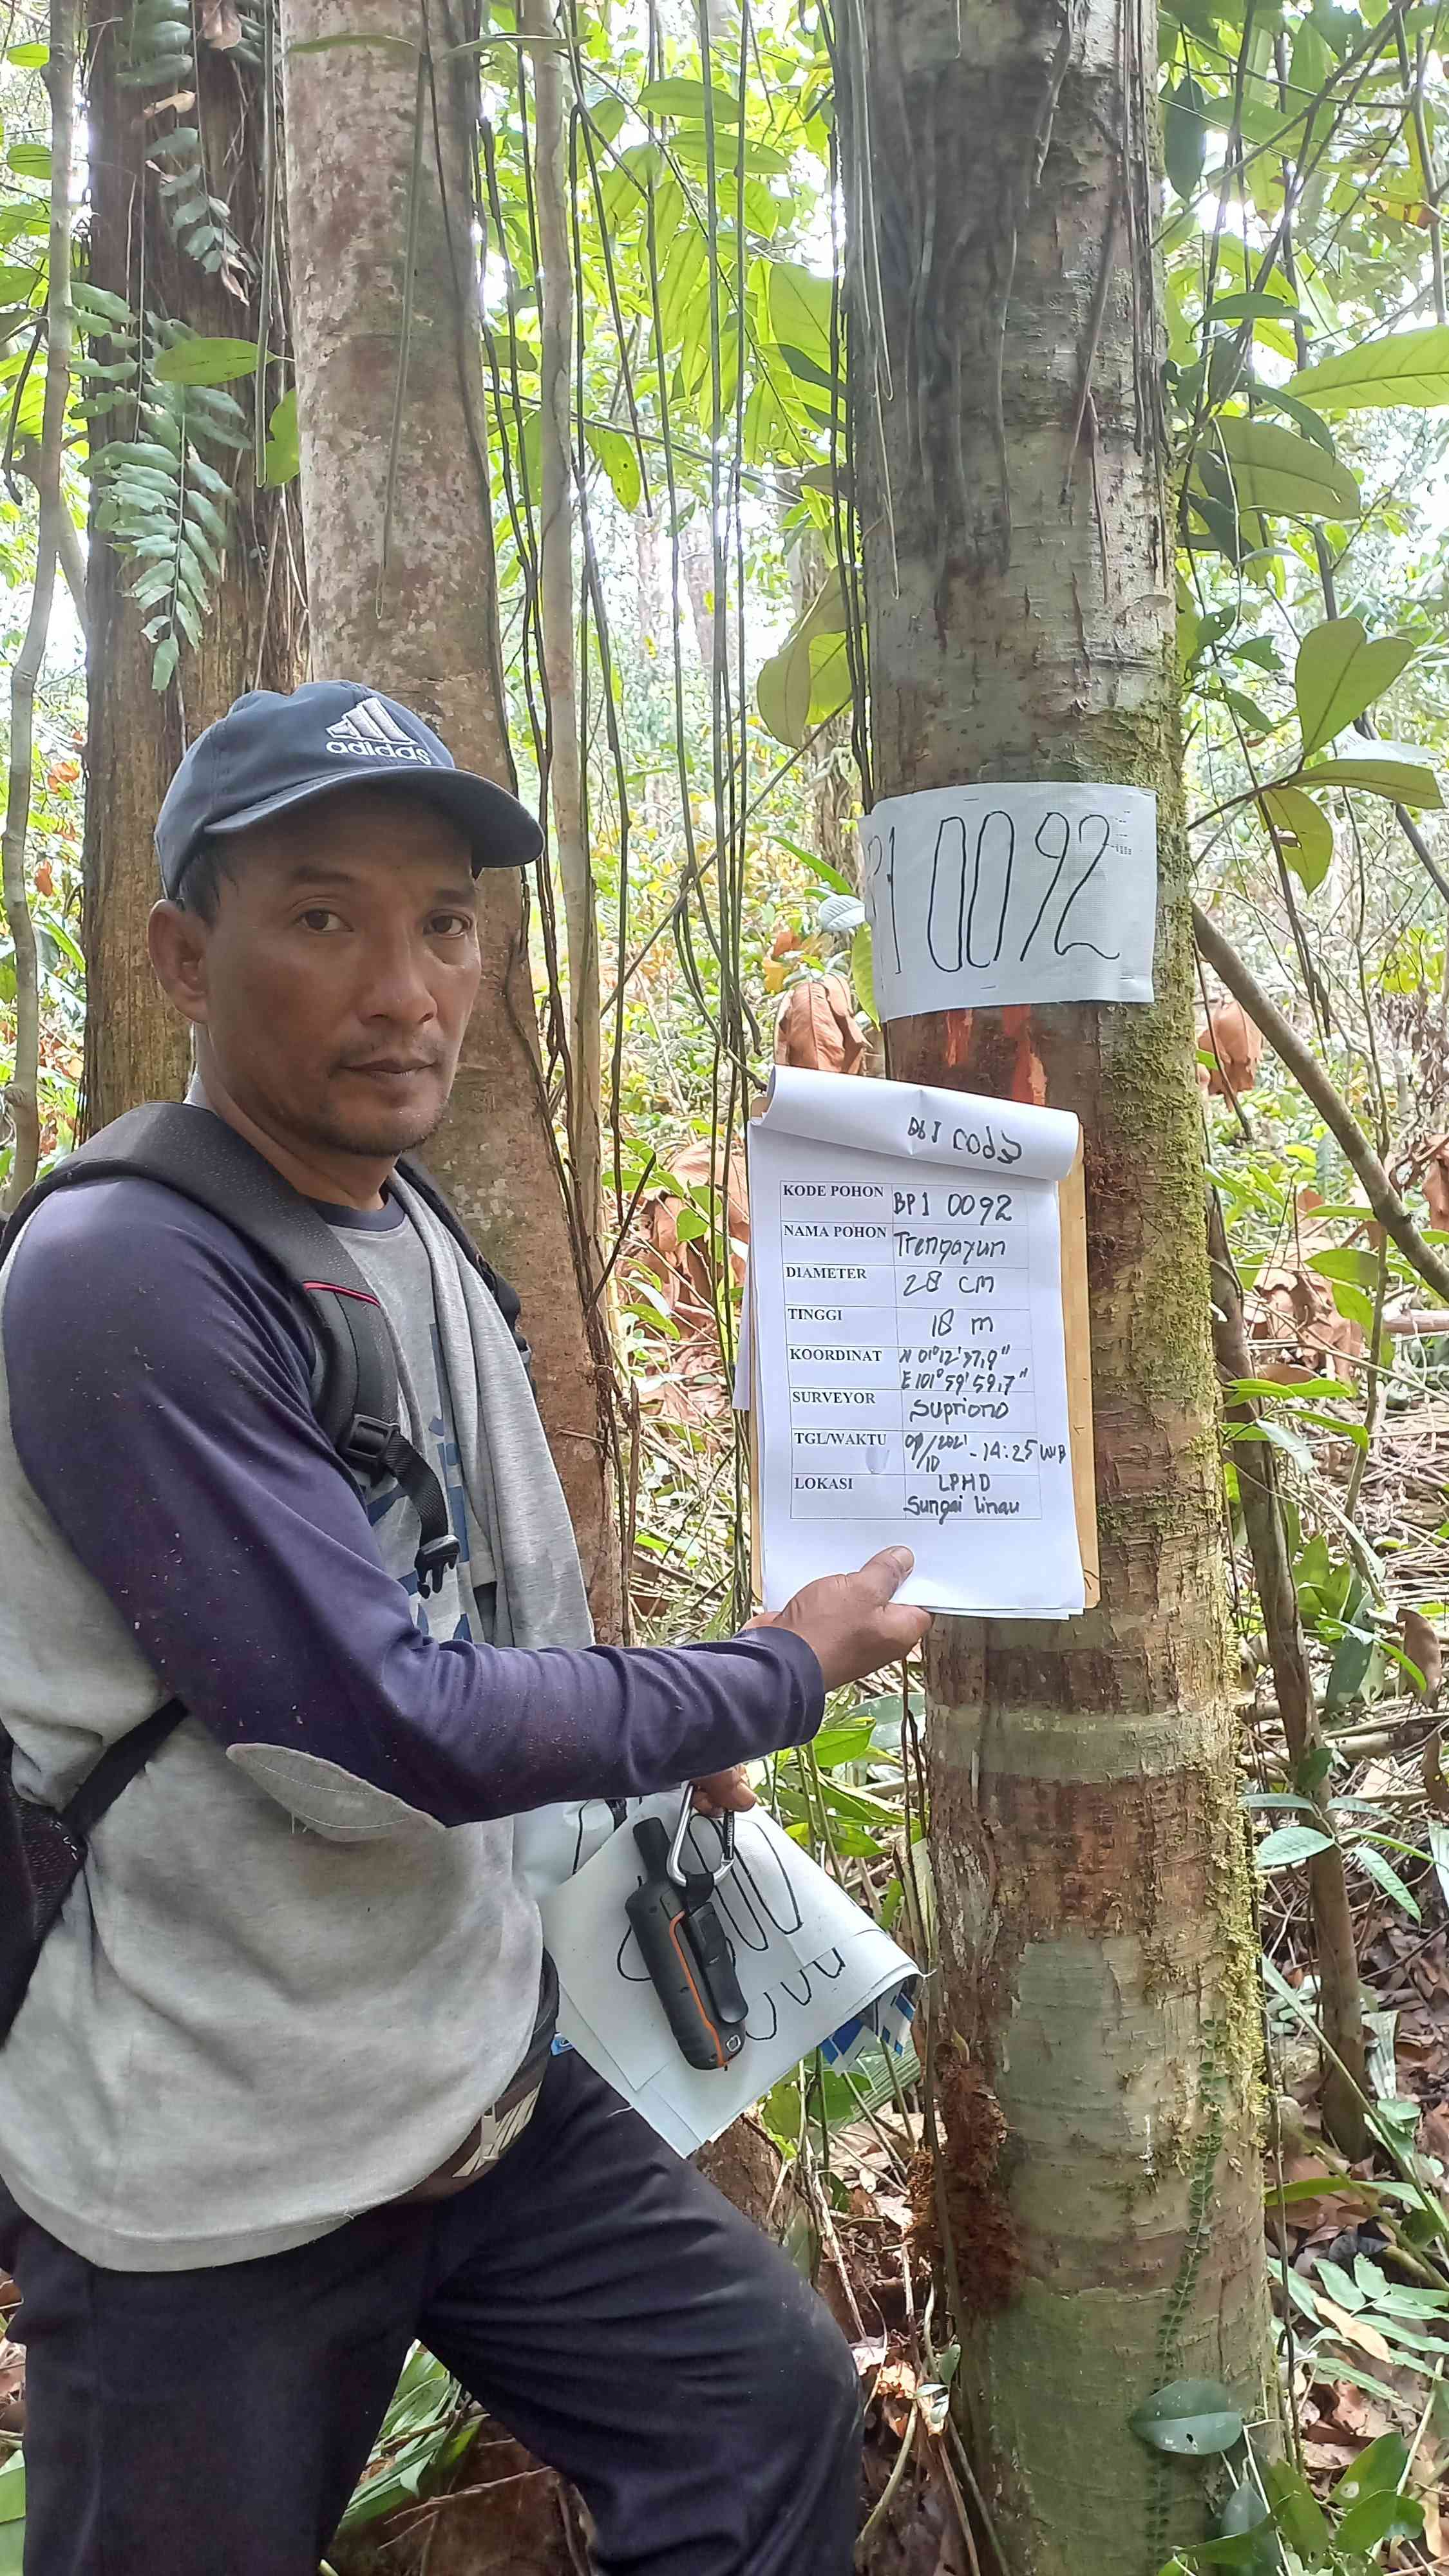 adidas
P1 0092
KODE POHON BP1 0092
NAMA POHON Trengayun
DIAMETER 28 CM
TINGGI 18 m
KOORDINAT N 01°12'37,9"
E101°59'59,7"
SURVEYOR Supriono
TGL/WAKTU 09/10/2021 - 14:25 WIB
LOKASI LPHD
Sungai linau